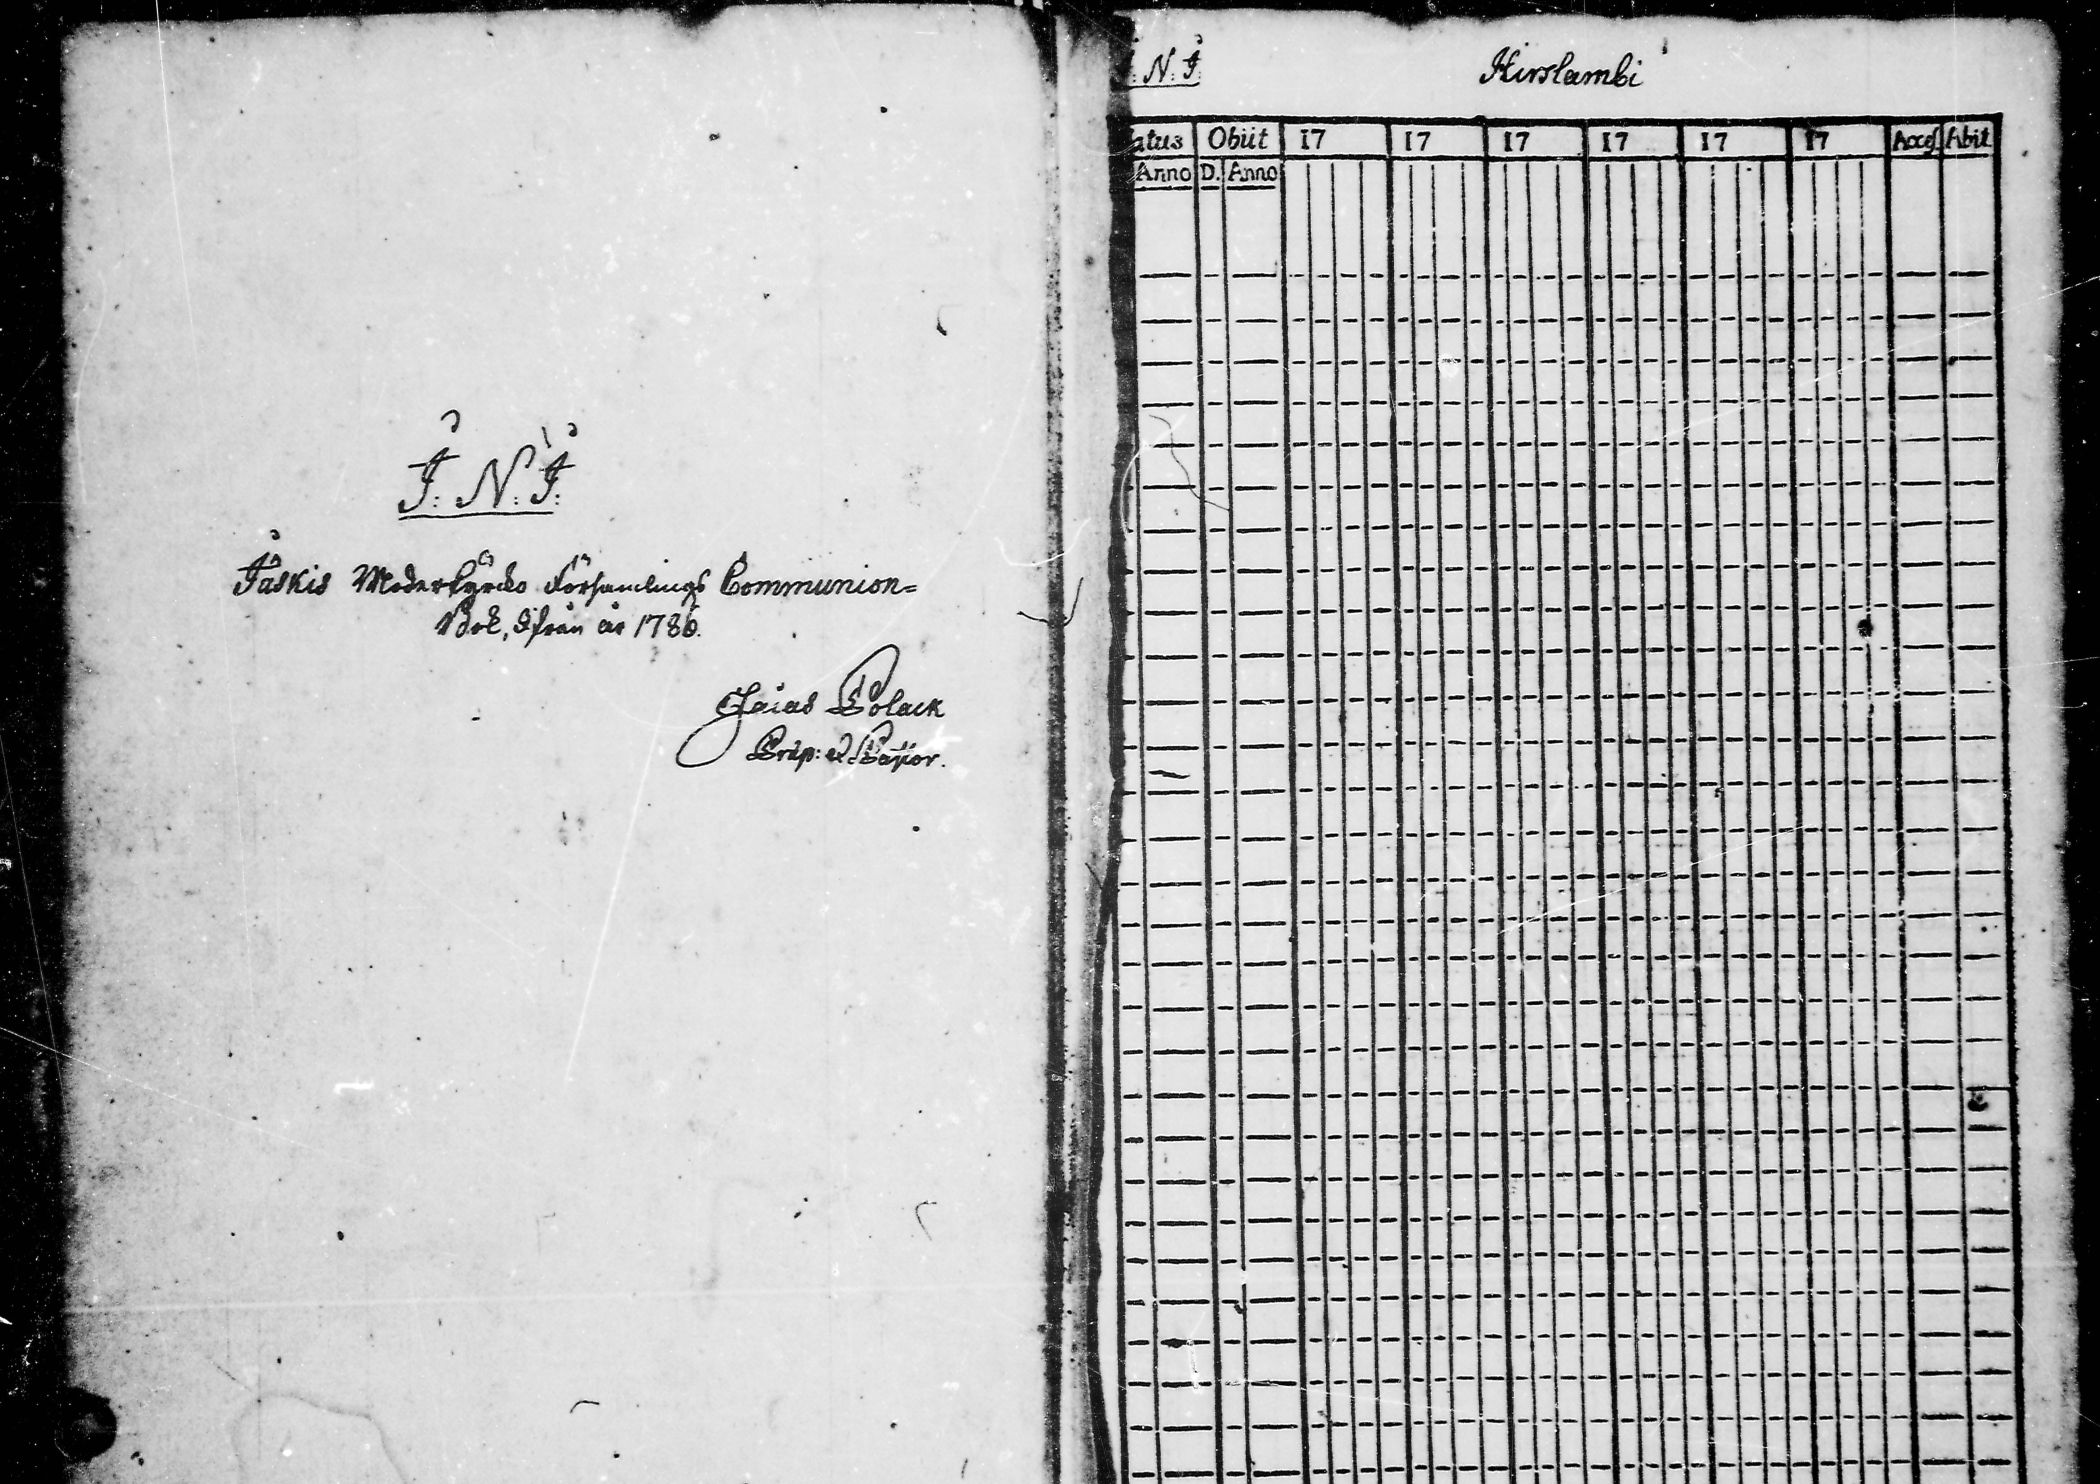 J: N: J:
Jäskis Moderkyrcko Församlings Communion=
Bok, ifrån år 1786.
Esaias Polack
Præp: et Pastor.
J: N: J:
Hirslambi
atus Obiit 17 17 17 17 17 17 Acces Abit
Anno D. Anno